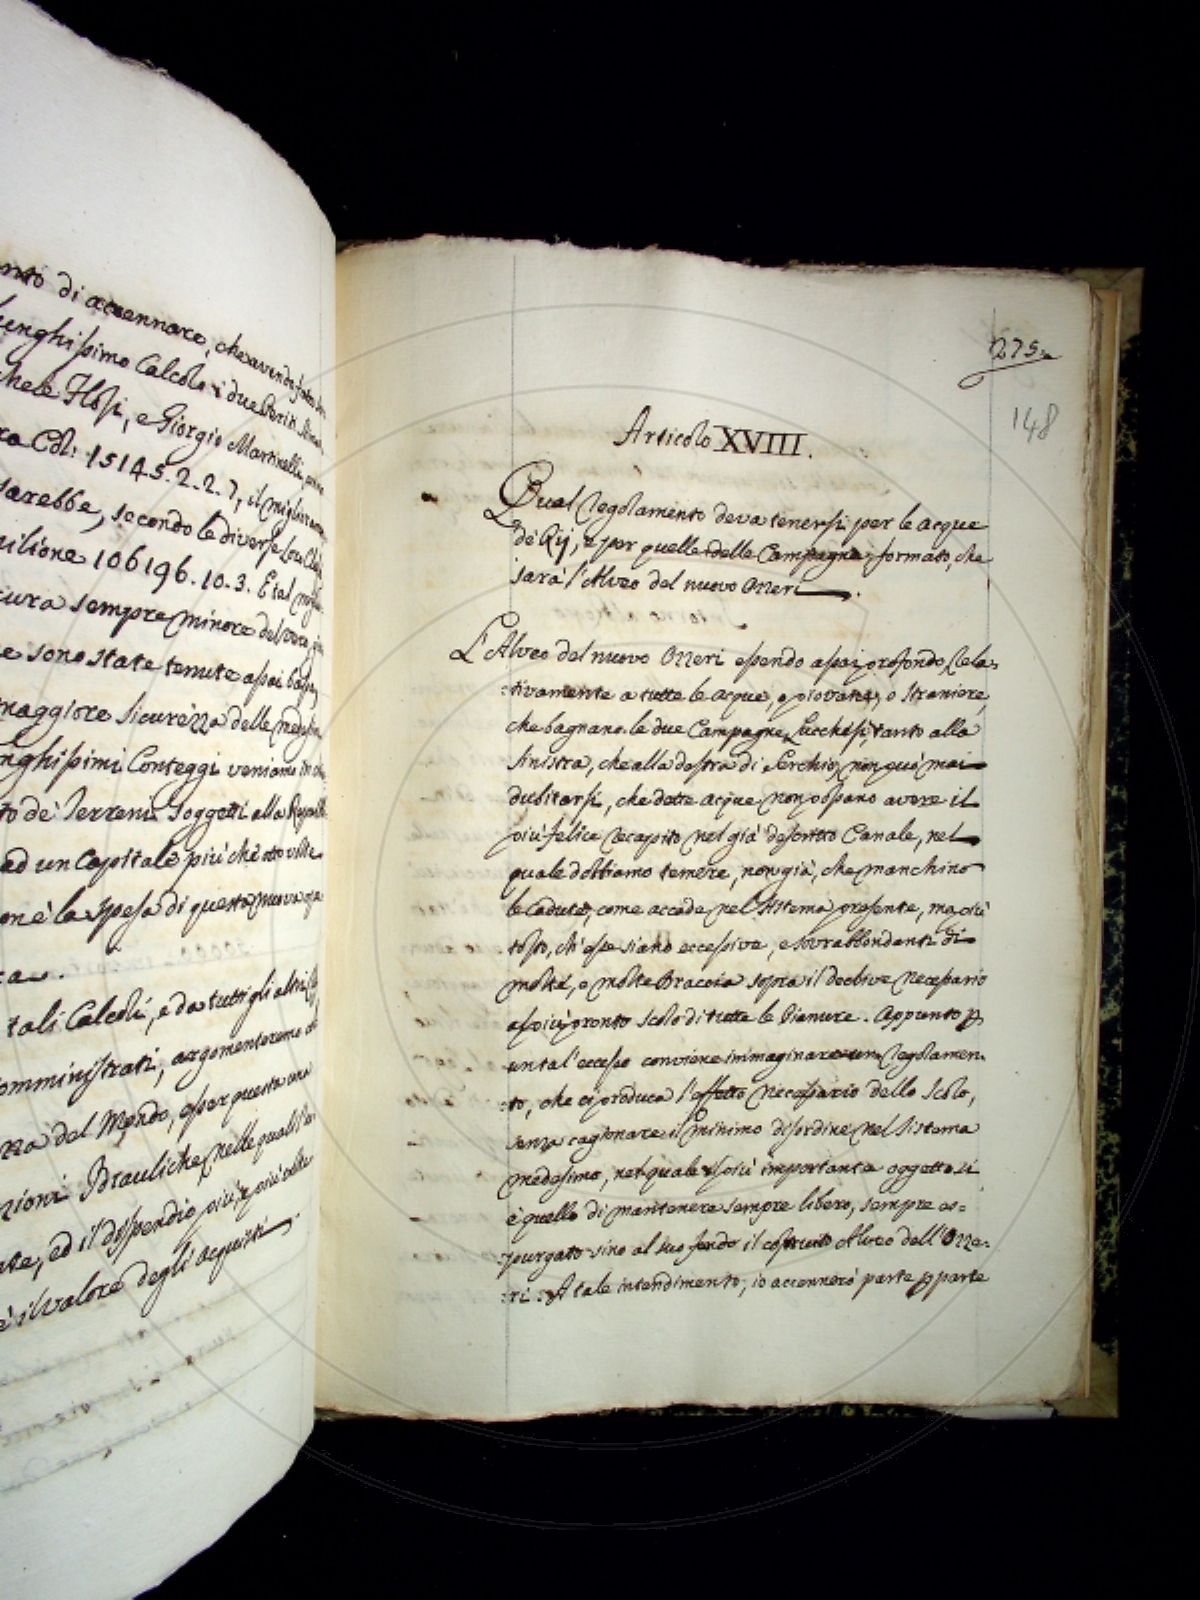 nto di accennare, che avendo fatto
lunghissimo Calcolo i due Periti
chele Flosi, e Giorgio Martinelli,
ra Col: 15145.2.2.7, il
sarebbe, secondo le diverse
ilione 106196.10.3. E tal
ura sempre minore del vero,
e sono state tenute assai basse,
maggiore sicurezza delle
nghissimi Conteggi veniamo in
to de' Terreni soggetti alla
ad un Capitale più che otto volte
on è la spesa di questa nuova
ra.
tali Calcoli, e da tutti gli altri
omministrati, argomenteremo
za del Mondo, esser questa una
zioni Idrauliche, nelle quali
te, ed il dispendio più, e più volte
è il valore degli acquisti.
275
148
Articolo XVIII.
Qual regolamento deva tenersi per le acque
de' Rij, e per quelle delle Campagne, formato, che
sarà l'Alveo del nuovo Ozzeri.
L'Alveo del nuovo Ozzeri essendo assai profondo rela-
:tivamente a tutte le acque, o piovane, o straniere,
che bagnano le due Campagne Lucchesi, tanto alla
sinistra, che alla destra di Serchio, non può mai
dubitarsi, che dette acque non possano avere il
più felice recapito nel già descritto Canale, nel
quale dobbiamo temere, non già, che manchino
le Cadute, come accade nel sistema presente, ma più
tosto, ch'esse siano eccessive, e sovrabbondanti di
molte, e molte Braccia sopra il declive necessario
al più pronto scolo di tutte le Pianure. Appunto p
un tal'eccesso conviene immaginare un regolamen-
:to, che ci produca l'effetto necessario dello Scolo,
senza cagionare il minimo disordine nel sistema
medesimo, nel quale il più importante oggetto si
è quello di mantenere sempre libero, sempre es-
:purgato sino al suo fondo il costruito Alveo dell'Ozze-
:ri. A tale intendimento, io accennerò parte p parte